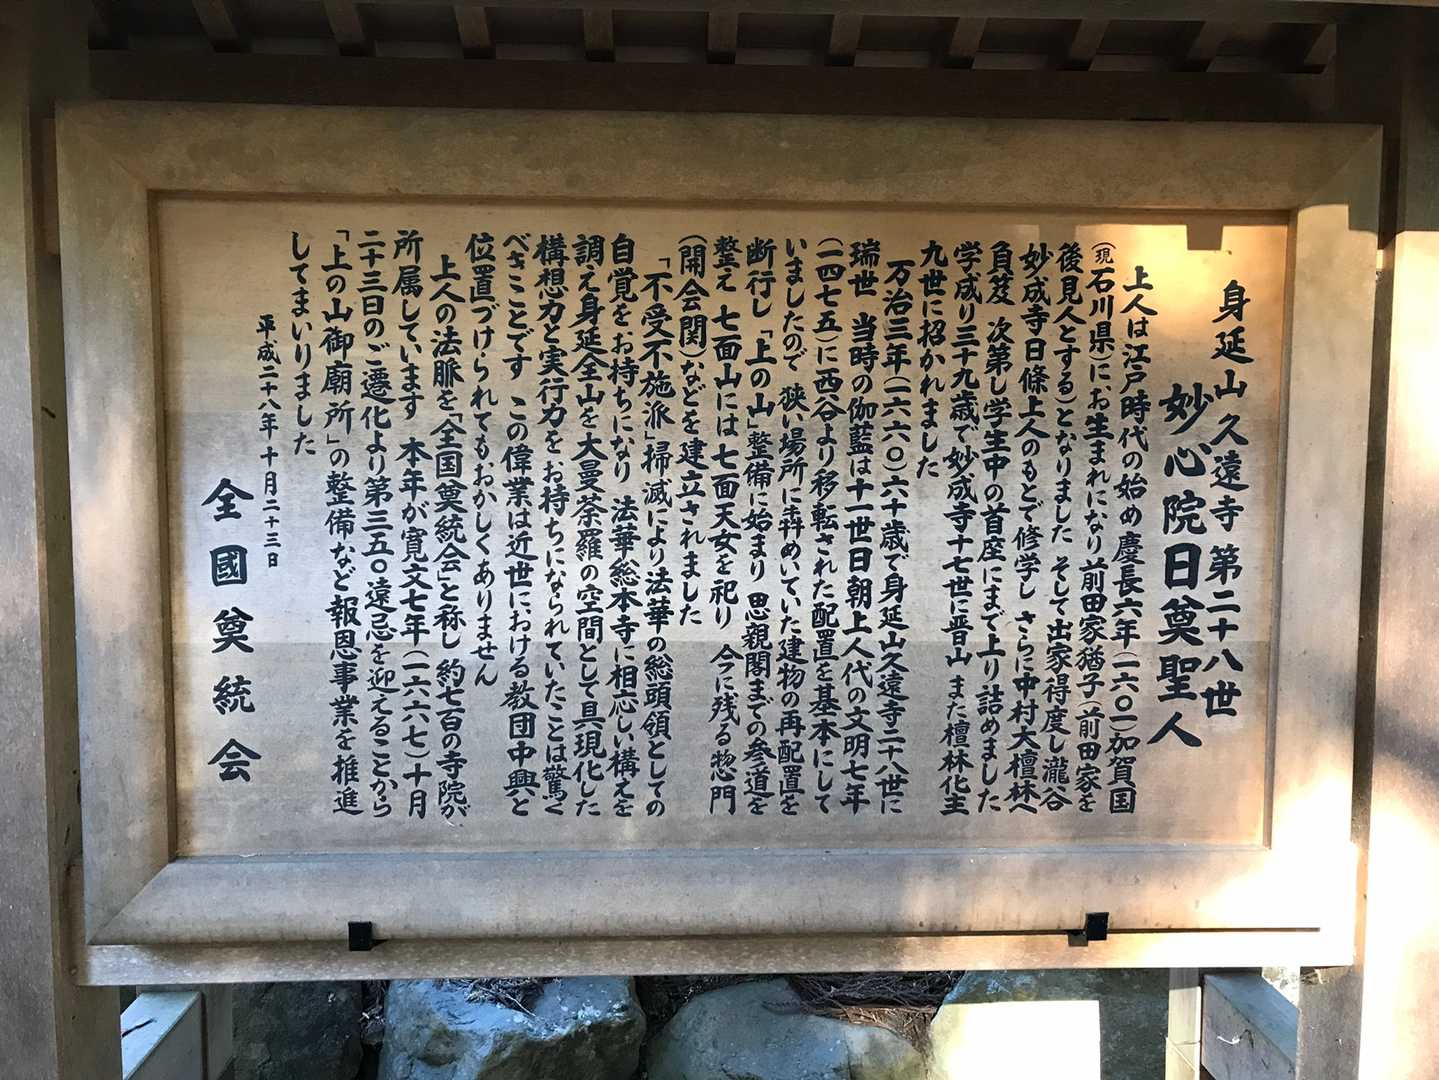 身延山久遠寺 第二十八世
妙心院日奠聖人
上人は江戸時代の始め慶長六年(一六〇一)加賀国
(現石川県)にお生まれになり前田家猶子(前田家を
後見人とする)となりました そして出家得度し瀧谷
妙成寺日條上人のもとで修学し さらに中村大檀林へ
負笈 次第し学生中の首座にまで上り詰めました
学成り三十九歳で妙成寺十七世に晋山 また檀林化主
九世に招かれました
万治三年(一六六〇)六十歳で身延山久遠寺二十八世に
瑞世 当時の伽藍は十一世日朝上人代の文明七年
(一四七五)に西谷より移転された配置を基本にして
いましたので 狭い場所に犇めいていた建物の再配置を
断行し「上の山」整備に始まり 思親閣までの参道を
整え 七面山には七面天女を祀り 今に残る惣門
(開会関)などを建立されました
「不受不施派」掃滅により法華の総頭領としての
自覚をお持ちになり 法華総本寺に相応しい構えを
調え身延全山を大曼荼羅の空間として具現化した
構想力と実行力をお持ちになられていたことは驚く
べきことです この偉業は近世における教団中興と
位置づけられてもおかしくありません
上人の法脈を「全国奠統会」と称し 約七百の寺院が
所属しています 本年が寛文七年(一六六七)十月
二十三日のご遷化より第三五〇遠忌を迎えることから
「上の山御廟所」の整備など報恩事業を推進
してまいりました
平成二十八年十月二十三日
全國奠統会